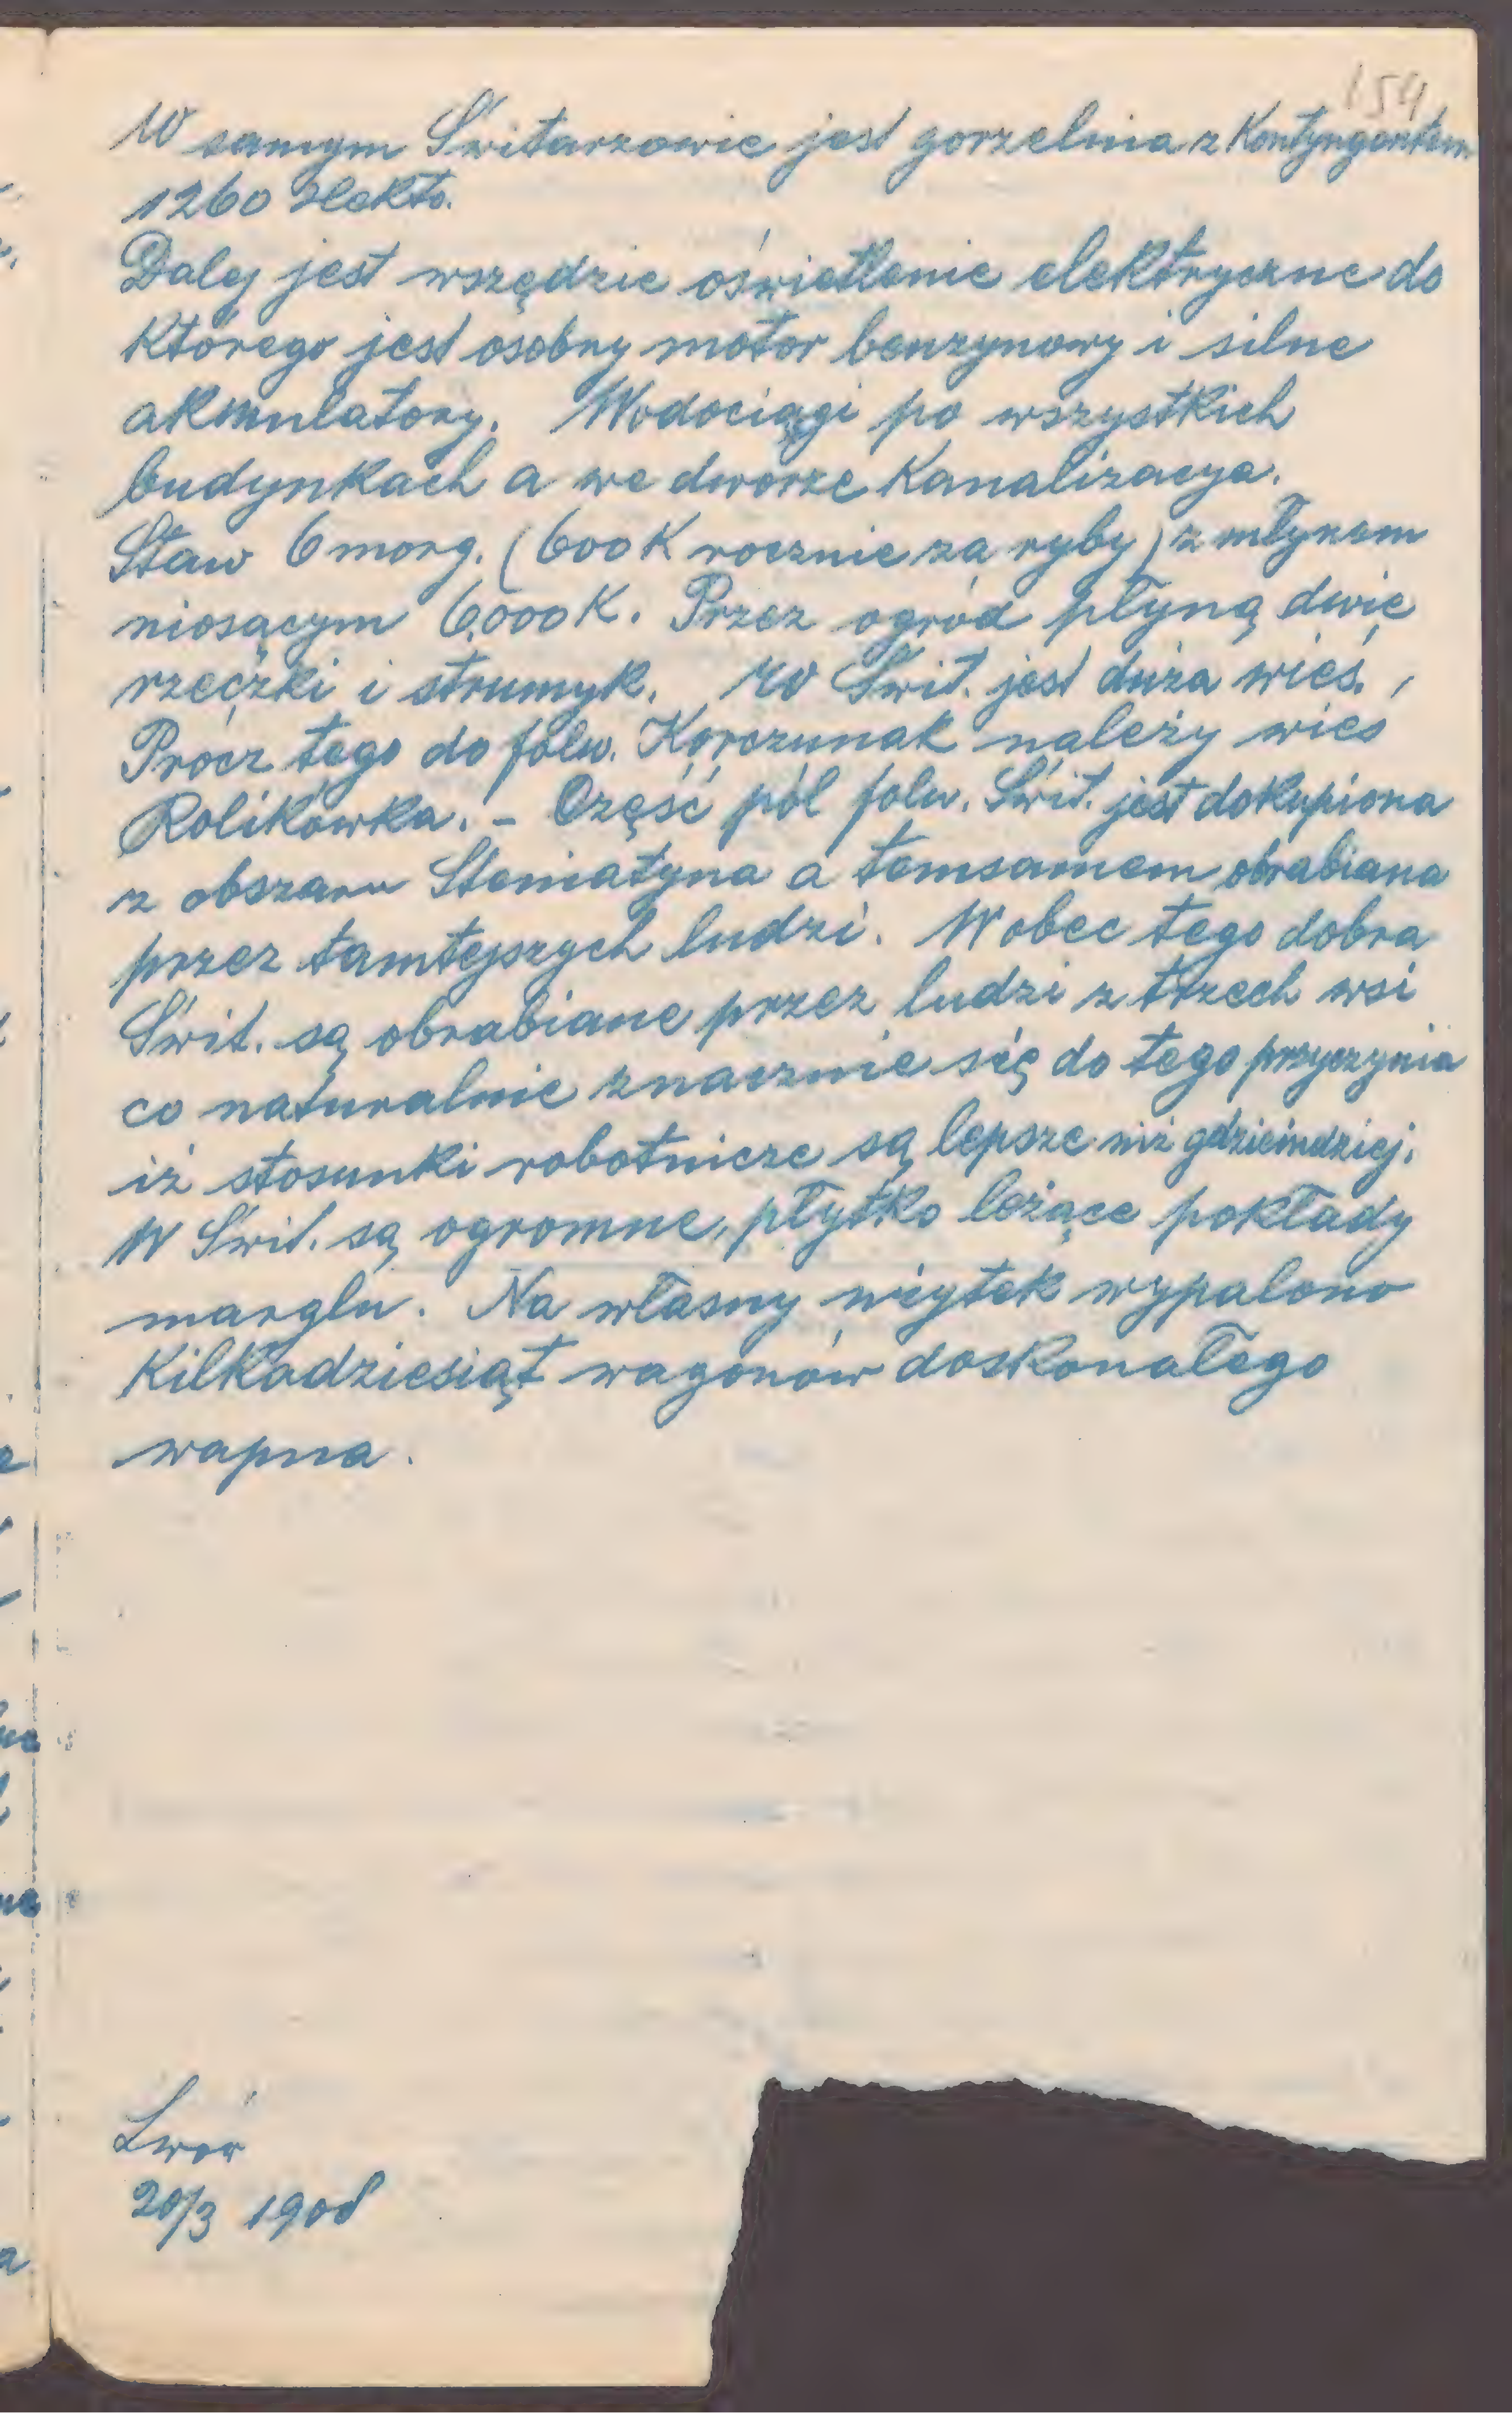 154
W samym Świtarzowie jest gorzelnia z Kontyngentem
1260 Hekto.
Dalej jest wszędzie oświetlenie elektryczne do
którego jest osobny motor benzynowy i silne
akmulatory. Wodociągi po wszystkich
budynkach a we dworze Kanalizacya.
Staw 6 morg. (600 K rocznie za ryby) z młynem
niosącym 6.000 K. Przez ogród płyną dwie
rzeczki i strumyk. W Świt. jest duża wieś.
Prócz tego do folw. Korczunak należy wieś
Rolikówka. - Część pól folw. Świt. jest dokupiona
z obszaru Steniatyna a temsamem obrabiana
przez tamtejszych ludzi. Wobec tego dobra
Świt. są obrabiane przez ludzi z trzech wsi
co naturalnie znacznie się do tego przyczynia
iż stosunki robotnicze są lepsze niż gdzieindziej.
W Świt. są ogromne, płytko leżące pokłady
marglu. Na własny użytek wypalono
Kilkadziesiąt wagonów doskonałego
wapna.
Lwów
20/3 1908